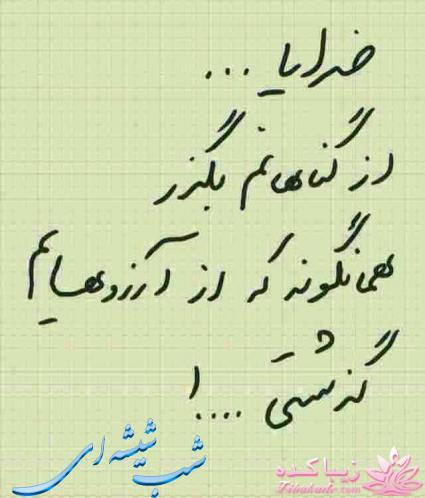 خدایا ...
از گناهانم بگذر
همانگونه که از آرزوهایم
گذشتی ....!
شب شیشه ای
زیباکده
Zibakade.com